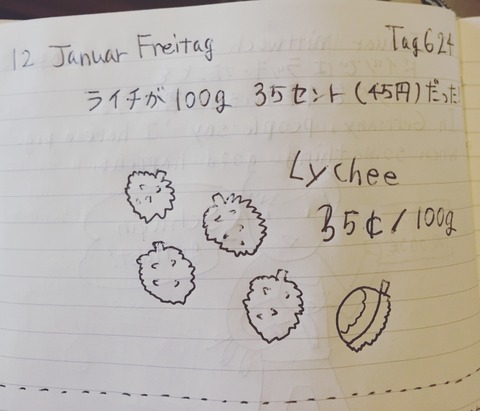 12 Januar Freitag Tag 624
ライチが 100g 35セント (45円) だった
Lychee
35¢/100g